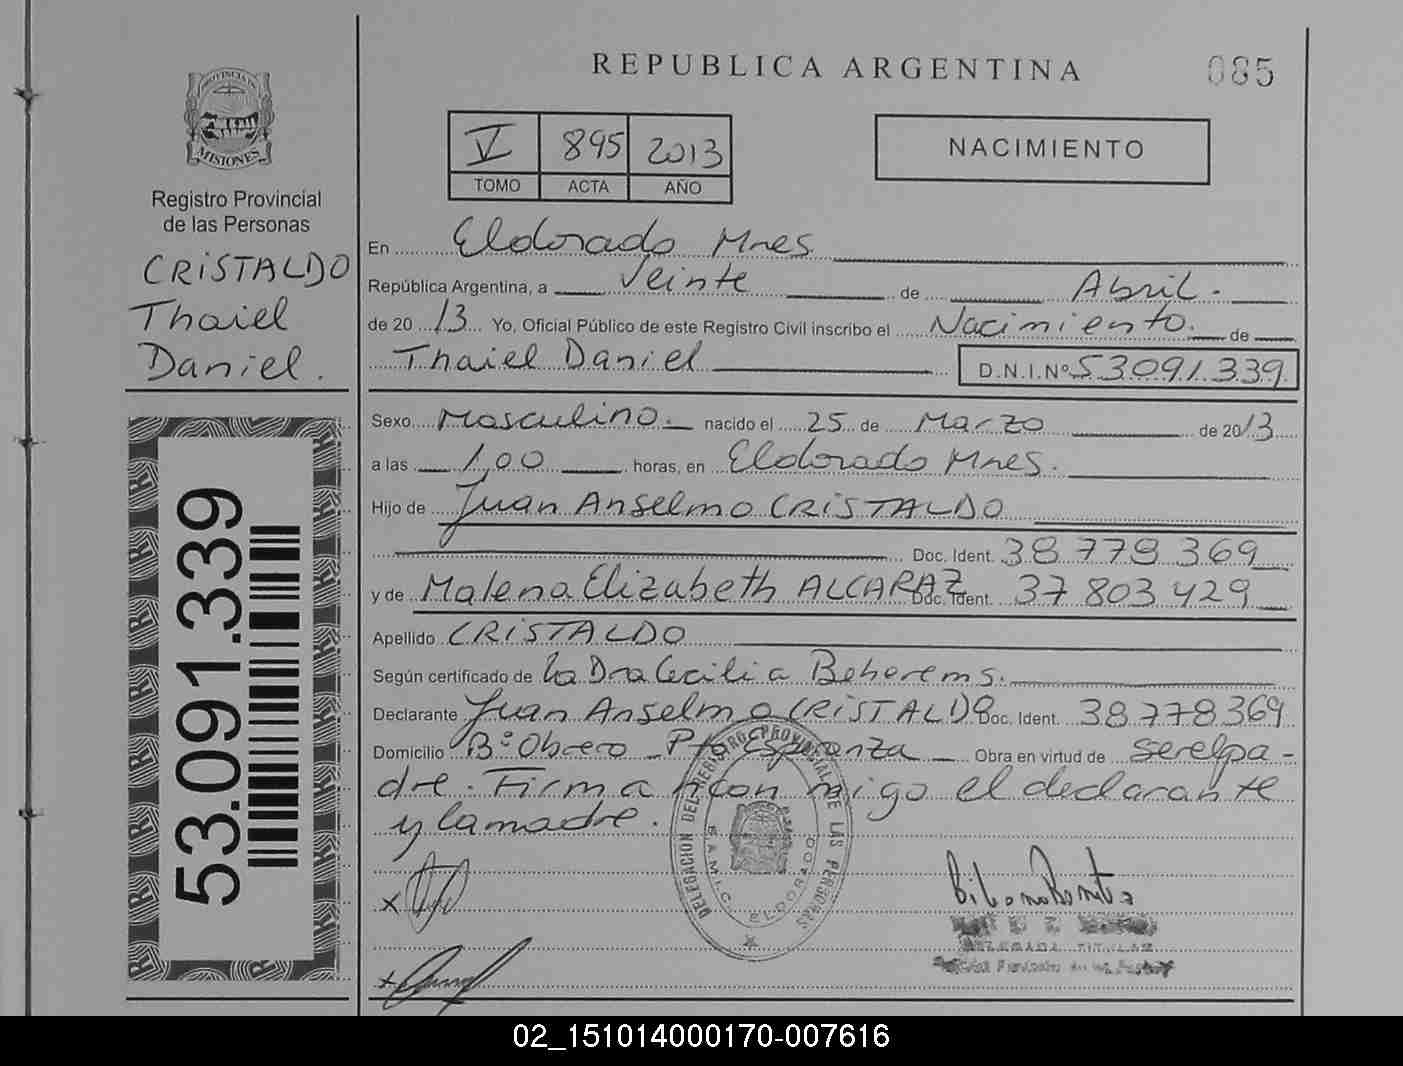 REPUBLICA ARGENTINA
085
PROVINCIA DE
MISIONES
Registro Provincial
de las Personas
CRISTALDO
Thaiel
Daniel.
53.091.339
V 895 2013
TOMO ACTA AÑO
NACIMIENTO
En Eldorado Mnes
República Argentina, a Veinte de Abril.
de 2013 Yo, Oficial Público de este Registro Civil inscribo el Nacimiento. de
Thaiel Daniel D.N.I.Nº 53091.339
Sexo Masculino. nacido el 25 de Marzo de 2013
a las 1,00 horas, en Eldorado Mnes.
Hijo de Juan Anselmo CRISTALDO
Doc. Ident. 38 778 369
y de Malena Elizabeth ALCARAZ Doc. Ident. 37 803 429
Apellido CRISTALDO
Según certificado de La Dra Cecilia Beherems.
Declarante Juan Anselmo CRISTALDO Doc. Ident. 38778369
Domicilio Bº Obrero Pto Esperanza Obra en virtud de ser el pa-
dre. Firman con migo el declarante
y la madre.
DELEGACION DEL REGISTRO PROVINCIAL DE LAS PERSONAS
ELDORADO
DELEGADA TITULAR
02_151014000170-007616